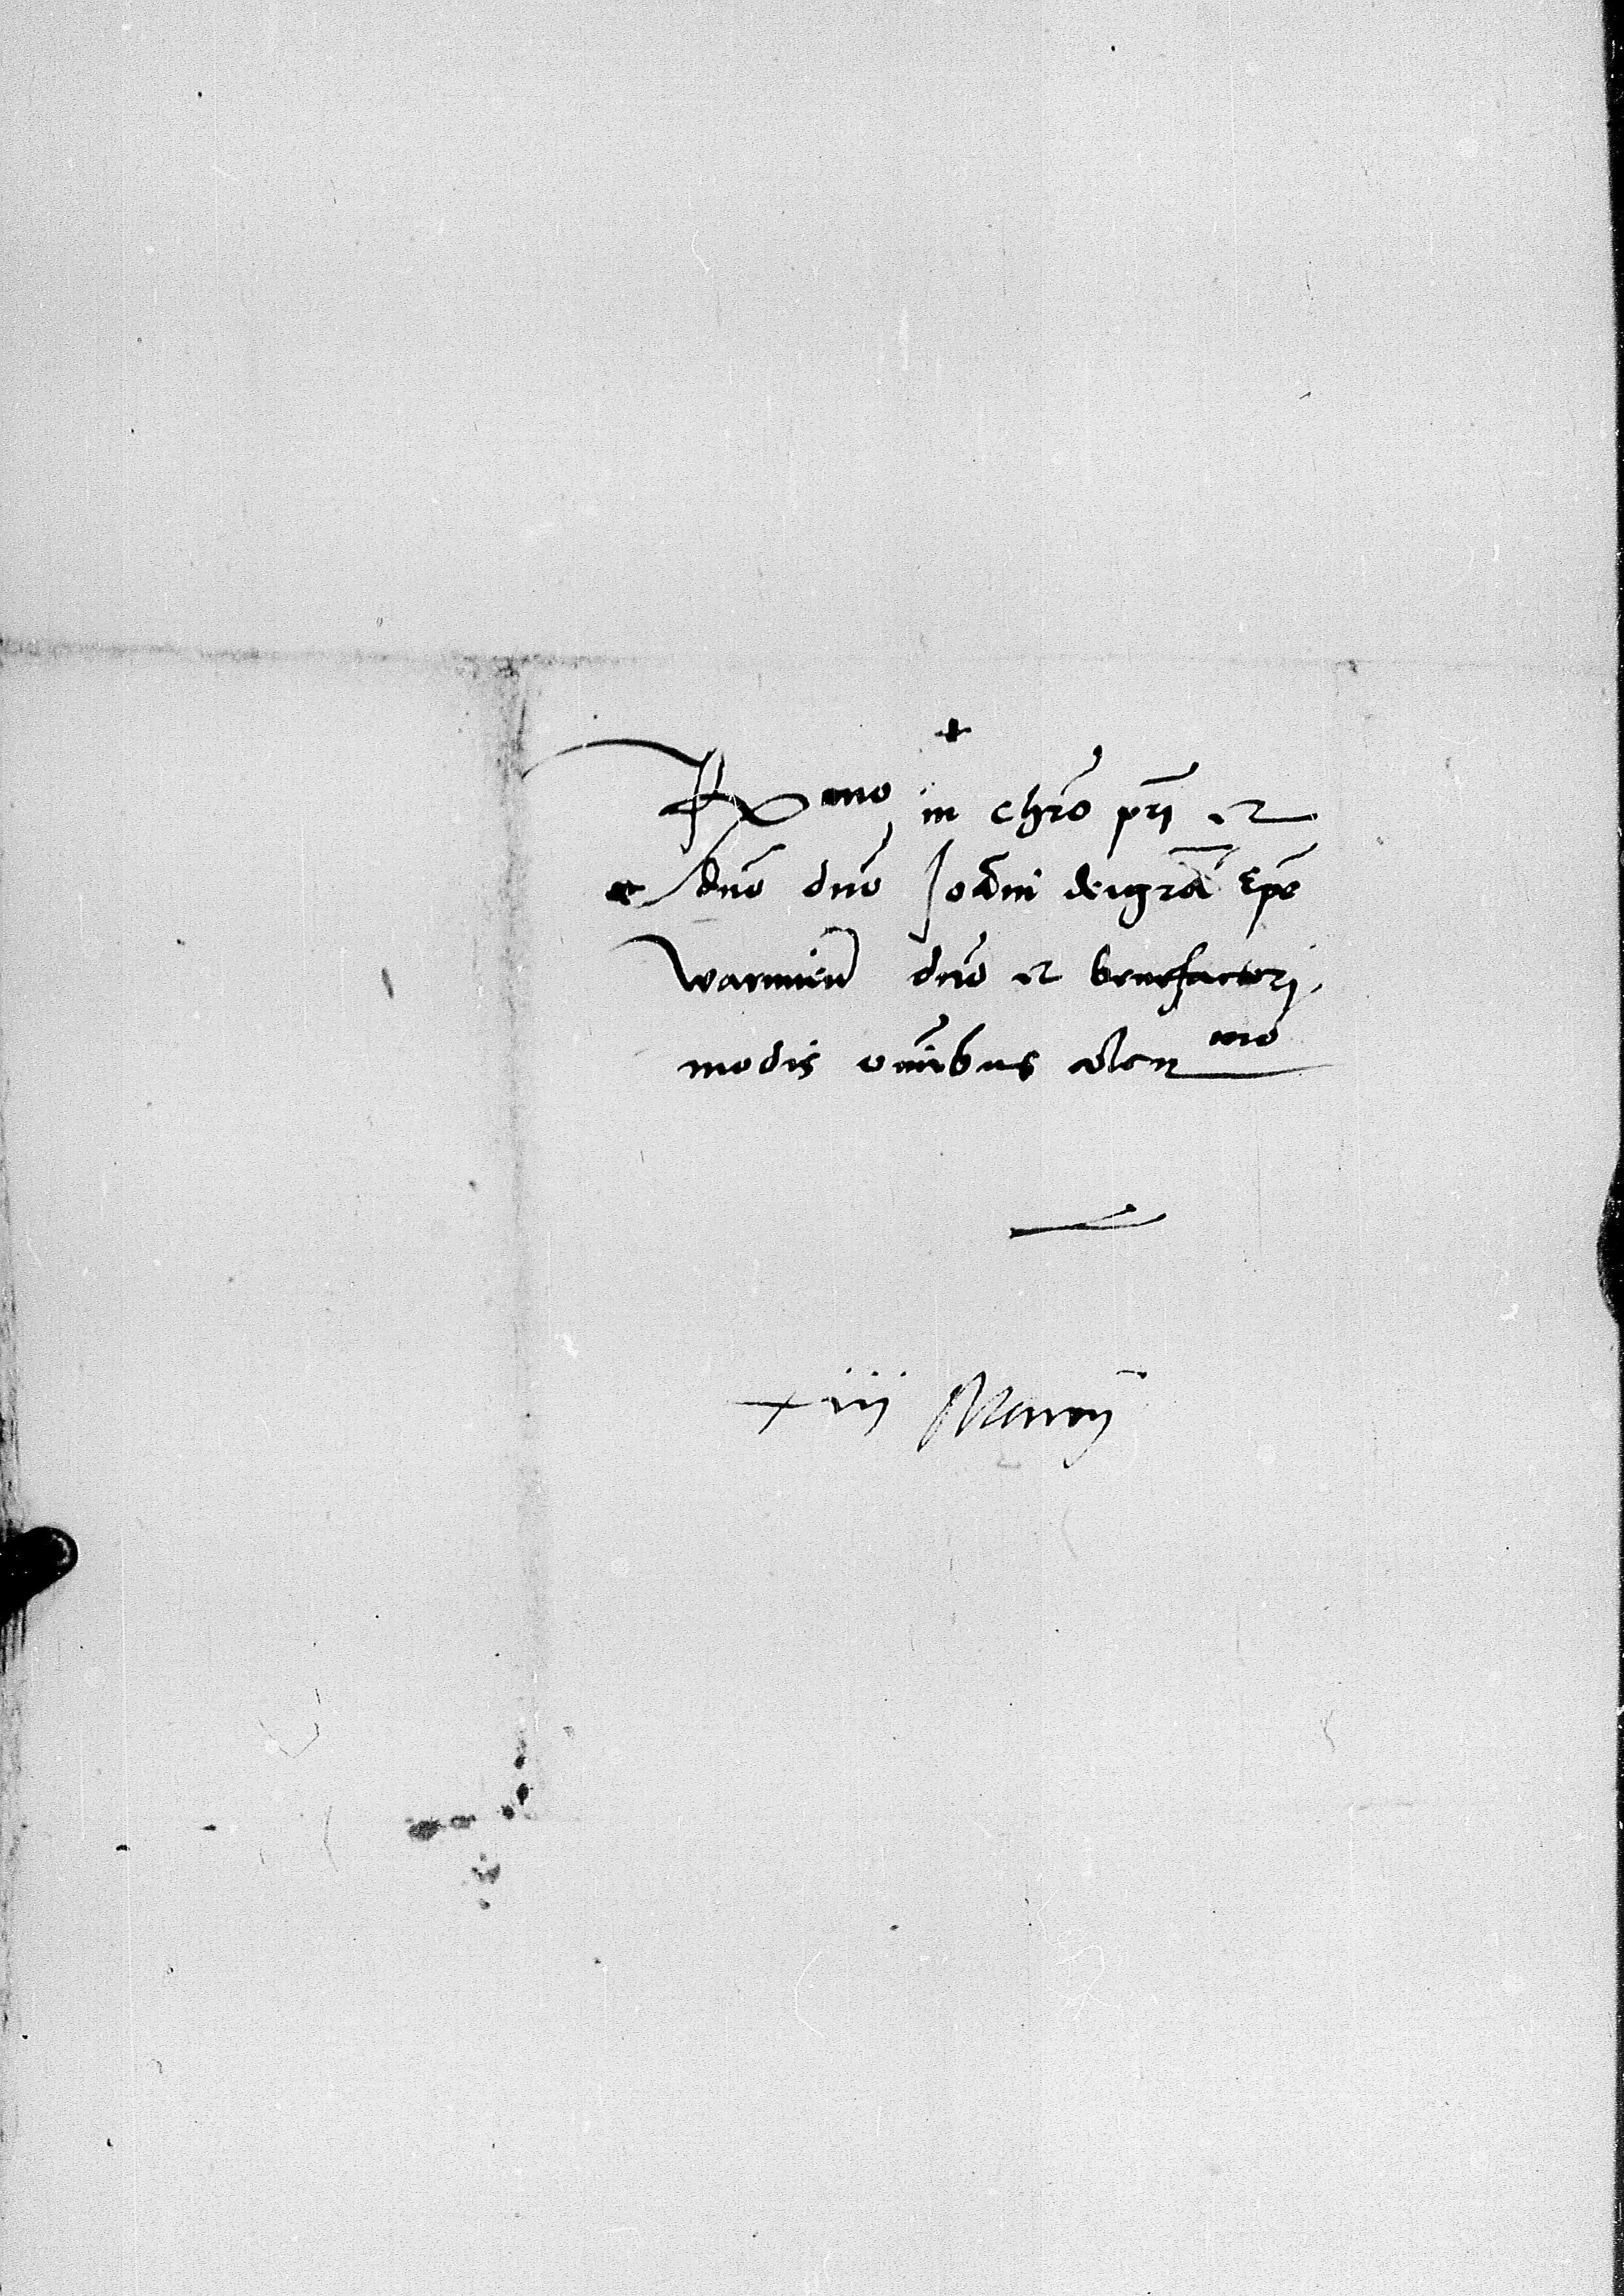 +
R mo in chr̄o pr̄i et
et dn̄o dn̄o Joān̄i dei gr̄a Ep̄o
warmień dn̄o et benefactori
modis om̄ibus colen mo
xiij Marcij